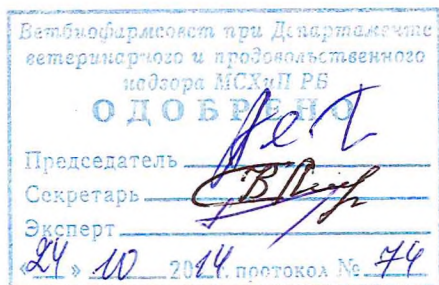 Ветбиофармсовет при Департаменте
ветеринарного и продовольственного
надзора МСХиП РБ
ОДОБРЕНО
Председатель
Секретарь
Эксперт
«24» 10 2014 г. протокол № 74